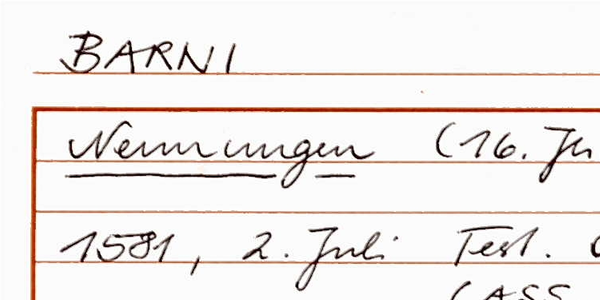 BARNI
Nennungen (16. Jh
1581, 2. Juli Test.
(ASS